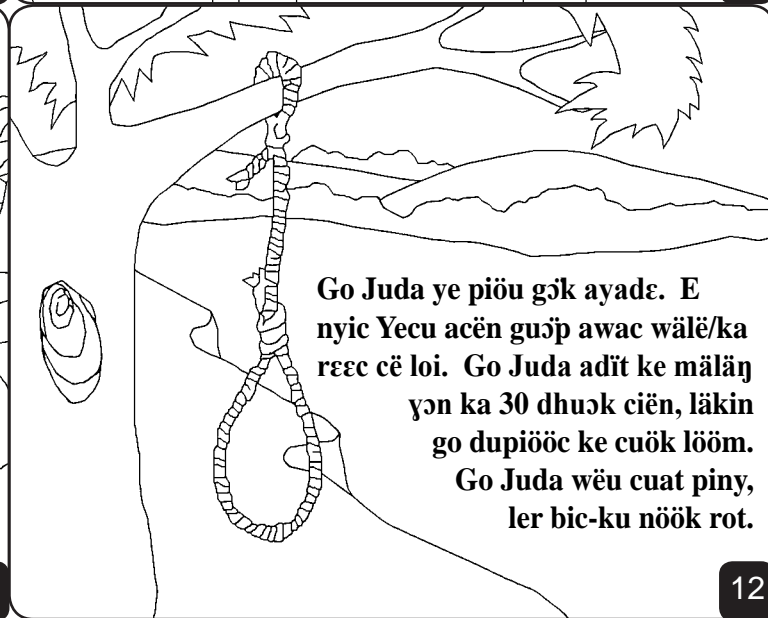 Go Juda ye piöu gɔ̈k ayadɛ. E
nyic Yecu acën guɔ̈p awac wälë/ka
rɛɛc cë loi. Go Juda adït ke mäläŋ
ɣɔn ka 30 dhuɔk ciën, läkin
go dupiööc ke cuök lööm.
Go Juda wëu cuat piny,
ler bic-ku nöök rot.
12